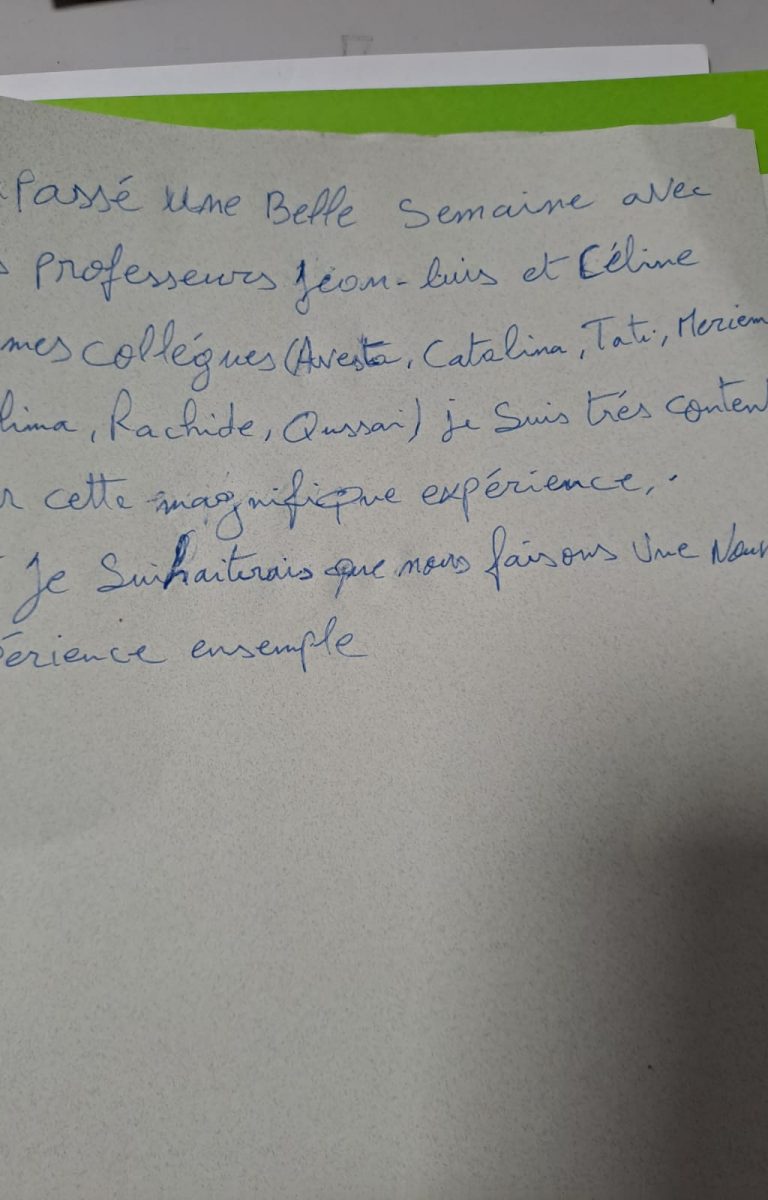 Passé Une Belle Semaine avec
s professeurs Jean-luis et Céline
mes collégues (Avesta, Catalina, Tati, Meriem
lima, Rachide, Qussai) je Suis trés content
r cette magnifique expérience,.
Je Suihaiterais que nous faisons Une Nouv
périence ensemple